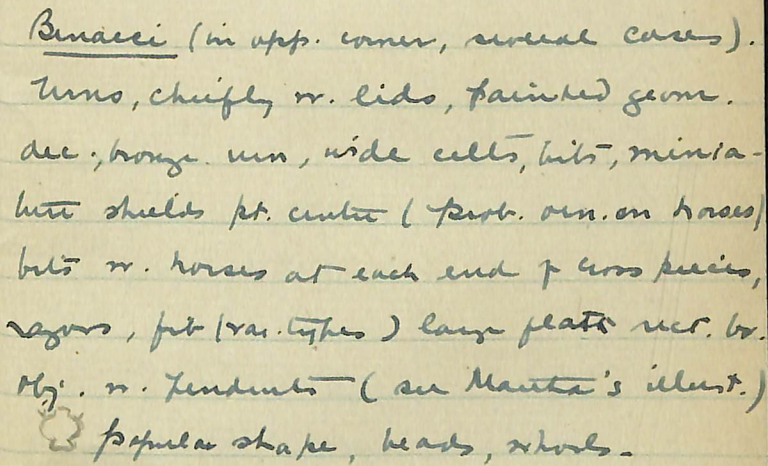 Benacci (in opp. corner, several cases).
Urns, chiefly w. lids, painted geom.
dec., bronze urn, wide celts, bits, minia-
ture shields pt. centre (prob. orn. on horses)
bits w. horses at each end of cross pieces,
razors, fib (var. types) large flat rect. br.
obj. w. pendents (see Martha's illust.)
popular shape, beads, whorls.